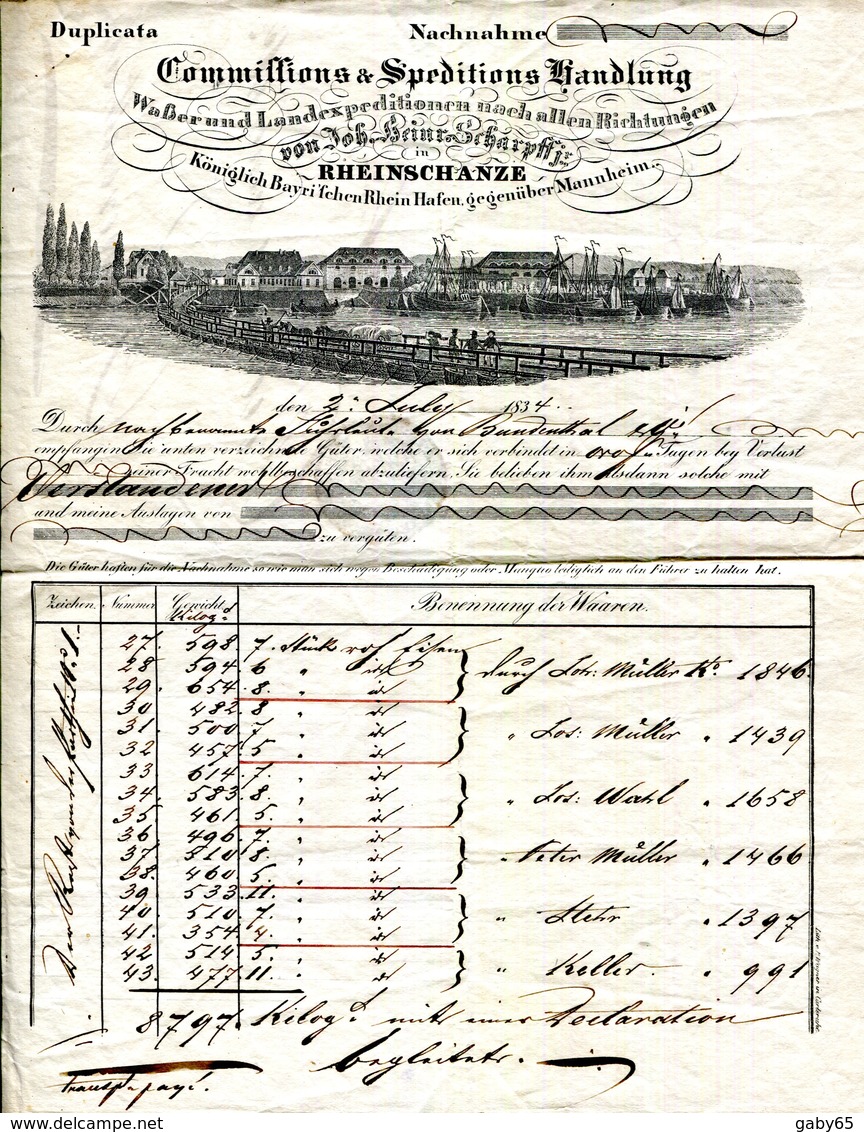 Duplicata Nachnahme
Commissions & Speditions Handlung
Waßer und Landexpeditionen nach allen Richtungen
von Joh. Heinr. Scharpff jr.
in
RHEINSCHANZE
Königlich Bayri'schen Rhein Hafen, gegenüber Mannheim.
den 2n July 1834
Durch nachbenannte Fuhrleute von Bundenthal
empfangen Sie unten verzeichnete Güter, welche er sich verbindet in Tagen bey Verlust
seiner Fracht wohlbeschaffen abzuliefern, Sie belieben ihm alsdann solche mit
Verstandener
und meine Auslagen von
zu vergüten.
Die Güter haften für die Nachnahme so wie man sich wegen Beschädigung oder Manquo lediglich an den Führer zu halten hat.
Zeichen. Nummer Gewicht Benennung der Waaren.
Kilogd
27. 598. 7. Stück roh Eisen
28 594. 6 " id durch Joh: Müller Ko. 1846.
29. 654. 8. " id
30 482. 8 " id
31. 500. 7 " id " Jos: Müller " 1439
32 457. 5. " id
33 614. 7. " id
34. 583. 8. " id " Jos: Wahl " 1658
35 461 5. " id
36 496. 7. " id
37. 510. 8. " id " Peter Müller " 1466
38. 460 5. " id
39 533. 11. " id
40. 510. 7. " id " Stehr " 1397
41. 354 4. " id
42 514 5. " id
43. 477. 11. " id " Keller. " 991
8797. Kilogd mit einer Declaration
begleitet.
Lith. v. in Carlsruhe.
www.delcampe.net gaby65